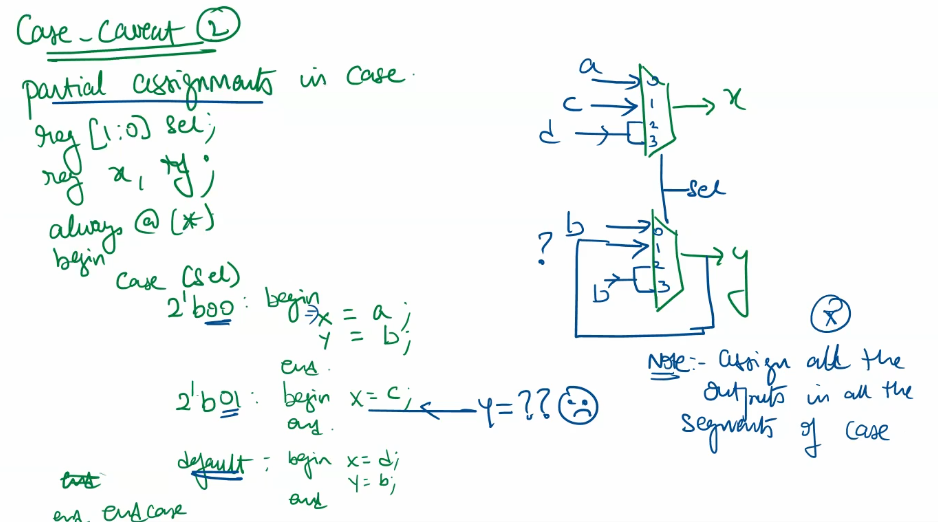 Case-Caveat 2
partial assignments in Case.
reg [1:0] sel;
reg x, y;
always @ (*)
begin
Case (sel)
2'b00: begin
x = a;
y = b;
end.
2'b01: begin x = c;
end.
y = ??
default: begin x = d;
y = b;
end
end. endcase
a
c
d
0
1
2
3
x
sel
b
?
b
0
1
2
3
y
Note:- assign all the
outputs in all the
segments of case